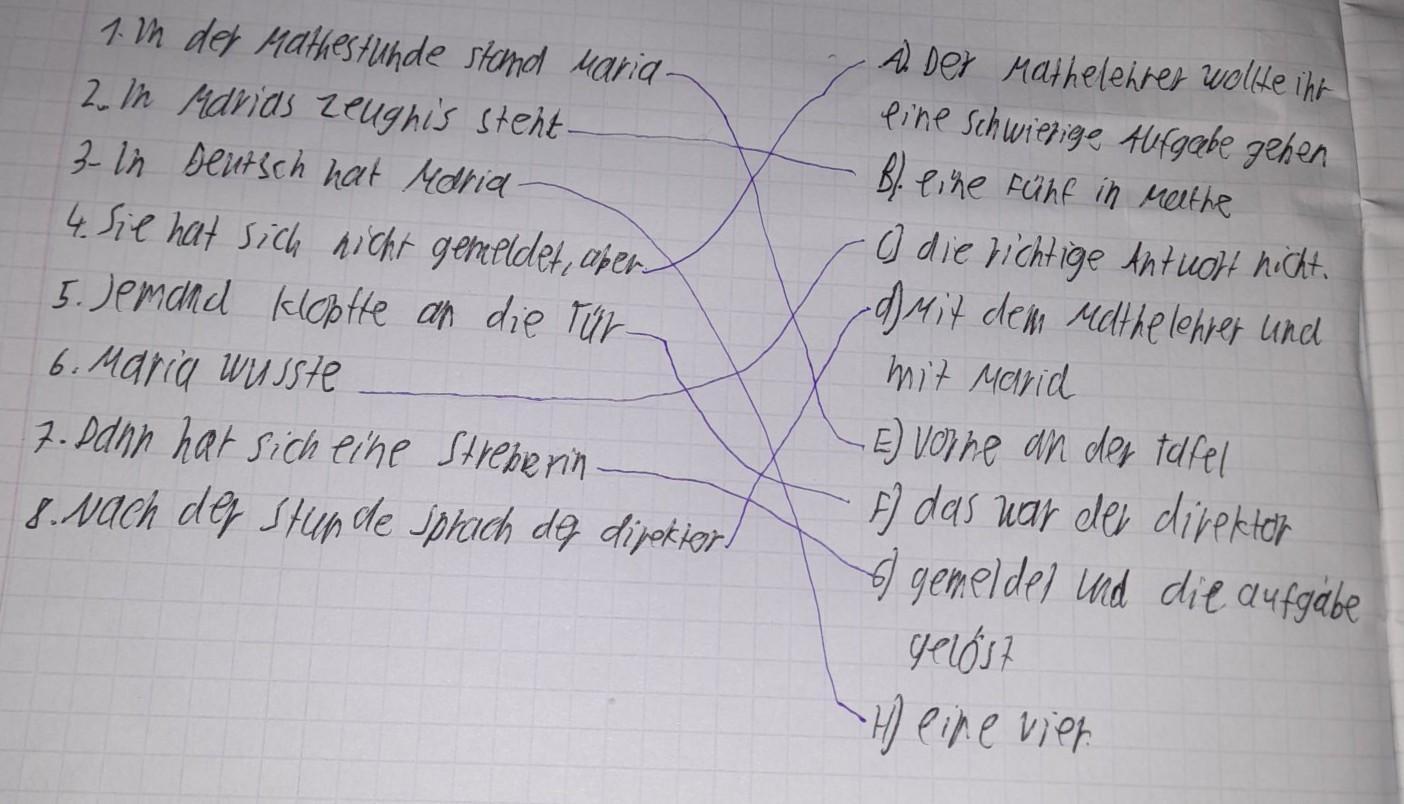 1. In der Mathestunde stand Maria
2. In Marias Zeugnis steht
3- In Deutsch hat Maria
4. Sie hat sich nicht gemeldet, aber
5. Jemand klopfte an die Tür
6. Maria wusste
7. Dann hat sich eine Streberin
8. Nach der Stunde sprach der direktor
A) Der Mathelehrer wollte ihr
eine schwierige Aufgabe geben
B) eine Fünf in Mathe
C) die richtige Antwort nicht.
d) Mit dem Mathelehrer und
mit Maria
E) Vorne an der tafel
F) das war der direktor
G) gemeldet und die aufgabe
gelöst
H) eine vier.